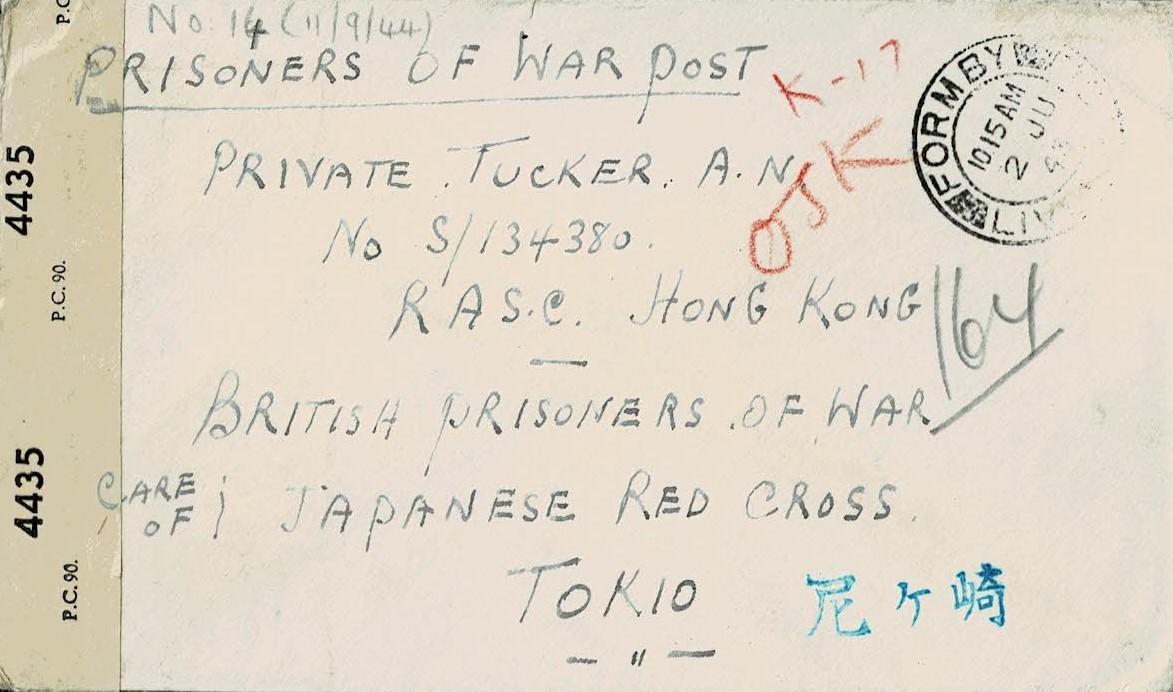 No. 14 (11/9/44)
PRISONERS OF WAR POST
K-17
OJK
FORMBY
LIV
10 15 AM
2 JU
PRIVATE TUCKER. A.N.
No S/134380.
R.A.S.C. HONG KONG
164
BRITISH PRISONERS OF WAR
CARE OF; JAPANESE RED CROSS.
TOKIO
尼ヶ崎
P.C. 90.
4435
P.C. 90.
4435